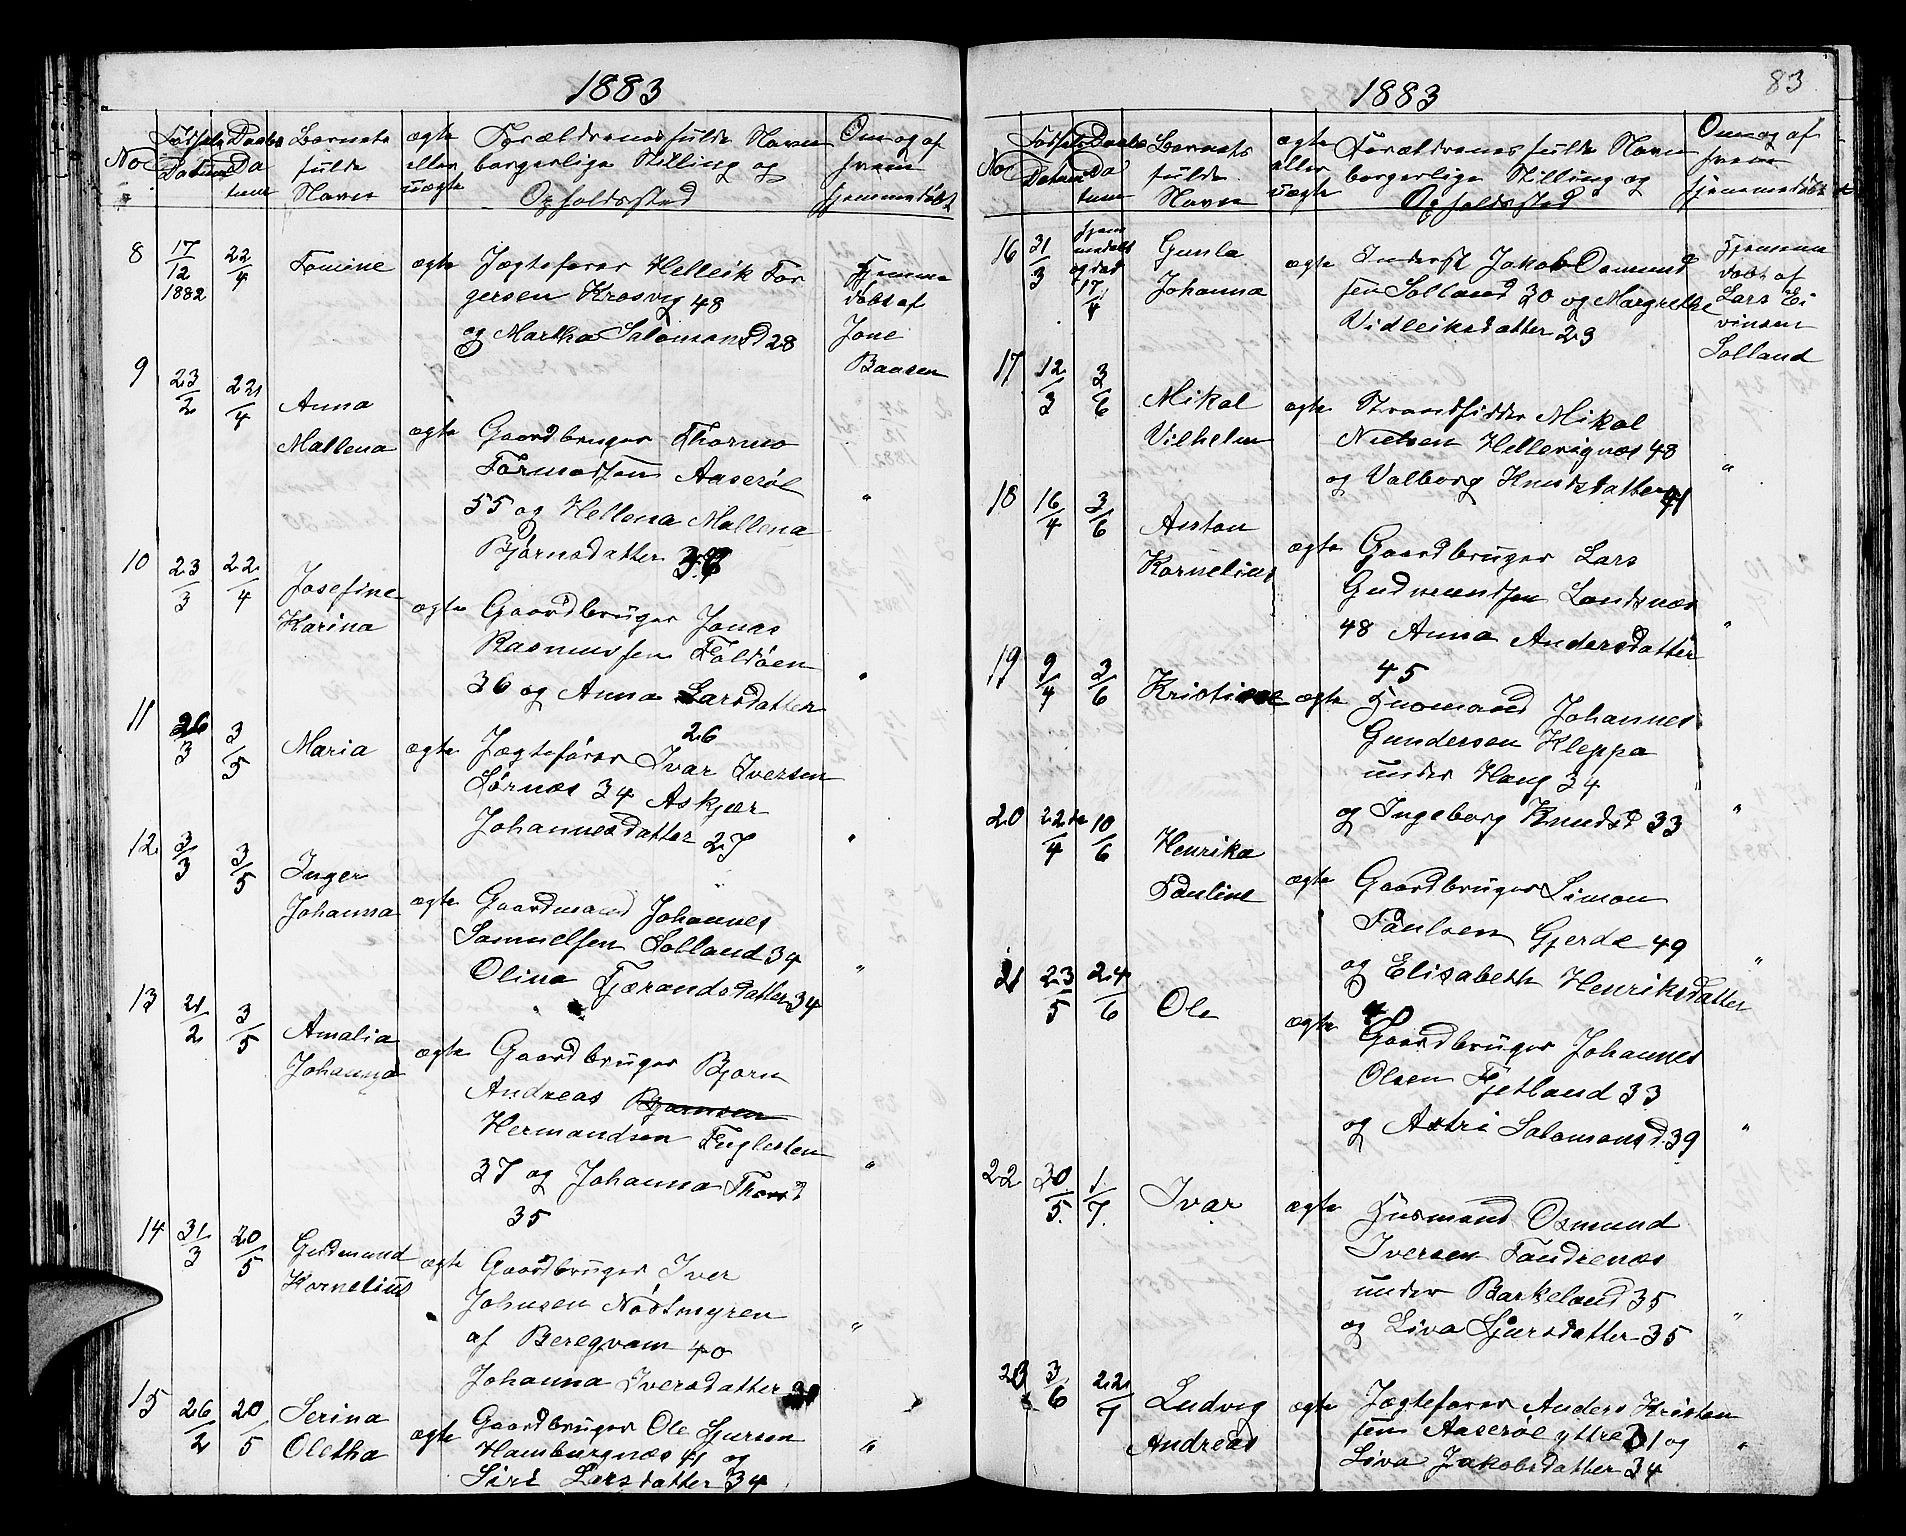 1883
No
Fødsels Daabs Barnets ægte Forældrenes fulde Navn Om og af
Datum Da fulde eller borgerlige Stilling og hvem
tum Navn uægte Opholdssted hjemmedøbt
8 17/12 1882 22/4 Tomine ægte Jægtefører Helleik Tor
gersen Krosvig 48
og Martha Salomonsd 28
Hjemme
døbt af
Jone
Baasen
9 23/2 22/4 Anna
Mallena
ægte Gaardbruger Thormo
Tormodsen Aaserøe
55 og Hellena Mallena "
Bjørnsdatter
10 23/3 22/4 Josefine
Karina
ægte Gaardbruger Jonas
Rasmussen Foldøen
36 og Anna Larsdatter "
26
11 26/3 3/5 Maria ægte Jægtefører Ivar Iversen
Sørnæs 34 Askjær
Johannesdatter 27 "
12 3/3 3/5 Inger
Johanna
ægte Gaardmand Johannes
Samuelsen Solland 34
Olina Tjærandsdatter 34 "
13 21/2 3/5 Amalia
Johanna
ægte Gaardbruger Bjørn
Andreas Bjørnsen
Hermandsen Fuglesten
37 og Johanna Thorsd "
35
14 31/3 20/5 Gudmund
Kornelius
ægte Gaardbruger Iver
Johnsen Nødtmyren
af Beregvam 40 "
Johanna Iversdatter
15 26/2 20/5 Serina
Oletha
ægte Gaardbruger Ole Sjursen
Hamburgnæs 41 og "
Siri Larsdatter 34
1883
83
No
Fødsels Daabs Barnets ægte Forældrenes fulde Navn Om og af
Datum Da fulde eller borgerlige Stilling og hvem
tum Navn uægte Opholdssted hjemmedøbt
16 31/3 hjem
medøbt
og død
17/4
Gunla
Johanna
ægte Inderst Jakob Osmund
sen Solland 30 og Margrethe
Vidleiksdatter 23
Hjemme
døbt af
Lars Ei
vinsen
Solland
17 12/3 3/6 Mikal
Vilhelm
ægte Strandsidder Mikal
Nielsen Hellevignæs 48
og Valborg Knudsdatter 41 "
18 16/4 3/6 Anton
Kornelius
ægte Gaardbruger Lars
Gudmundsen Landsnæs
48 Anna Andersdatter "
45
19 9/4 3/6 Kristine ægte Husmand Johannes
Gundersen Kleppa
under Haug 34
og Ingeborg Knudsd 33 "
20 22de/4 10/6 Henrika
Pauline
ægte Gaardbruger Simon
Paulsen Gjerde 49
og Elisabeth Henriksdatter "
40
21 23/5 24/6 Ole ægte Gaardbruger Johannes
Olsen Fjetland 33
og Astri Salomonsd. 39 "
22 30/5. 1/7. Ivar ægte Husmand Osmund
Iversen Tandrenæs
under Barkeland 35
og Liva Sjursdatter 35 "
23 3/6 22/7 Ludvig
Andreas
ægte Jægtefører Anders Kristen
sen Aaserøe yttre 31 og
Liva Jakobsdatter 34 "